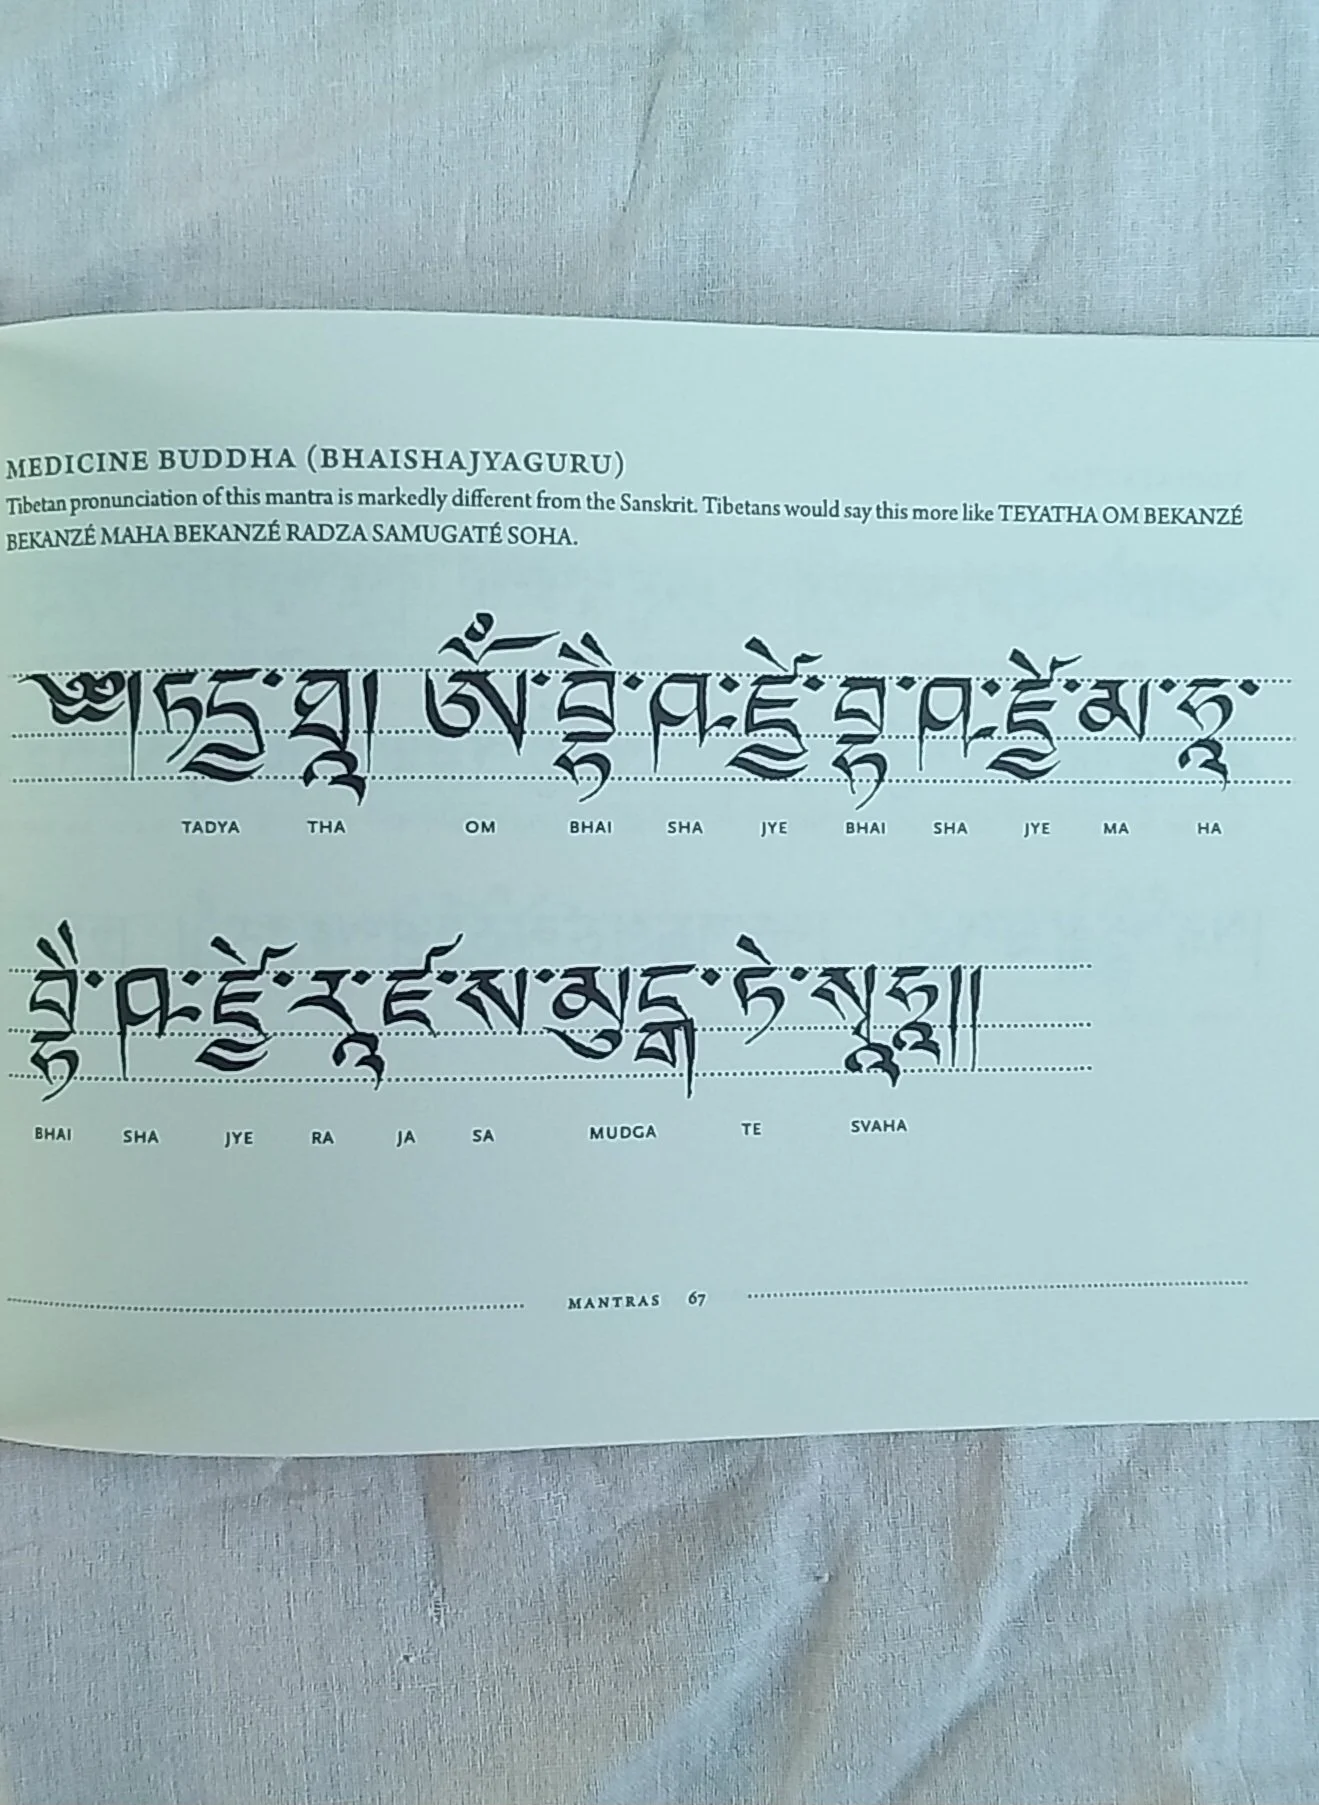 MEDICINE BUDDHA (BHAISHAJYAGURU)
Tibetan pronunciation of this mantra is markedly different from the Sanskrit. Tibetans would say this more like TEYATHA OM BEKANZÉ
BEKANZÉ MAHA BEKANZÉ RADZA SAMUGATÉ SOHA.
༄།ཏདྱ་ཐཱ། ཨོཾ་བྷཻ་ཥ་ཛྱེ་བྷཻ་ཥ་ཛྱེ་མ་ཧཱ་
TADYA THA OM BHAI SHA JYE BHAI SHA JYE MA HA
བྷཻ་ཥ་ཛྱེ་རཱ་ཛ་ས་མུདྒ་ཏེ་སྭཱཧཱ།།
BHAI SHA JYE RA JA SA MUDGA TE SVAHA
MANTRAS 67